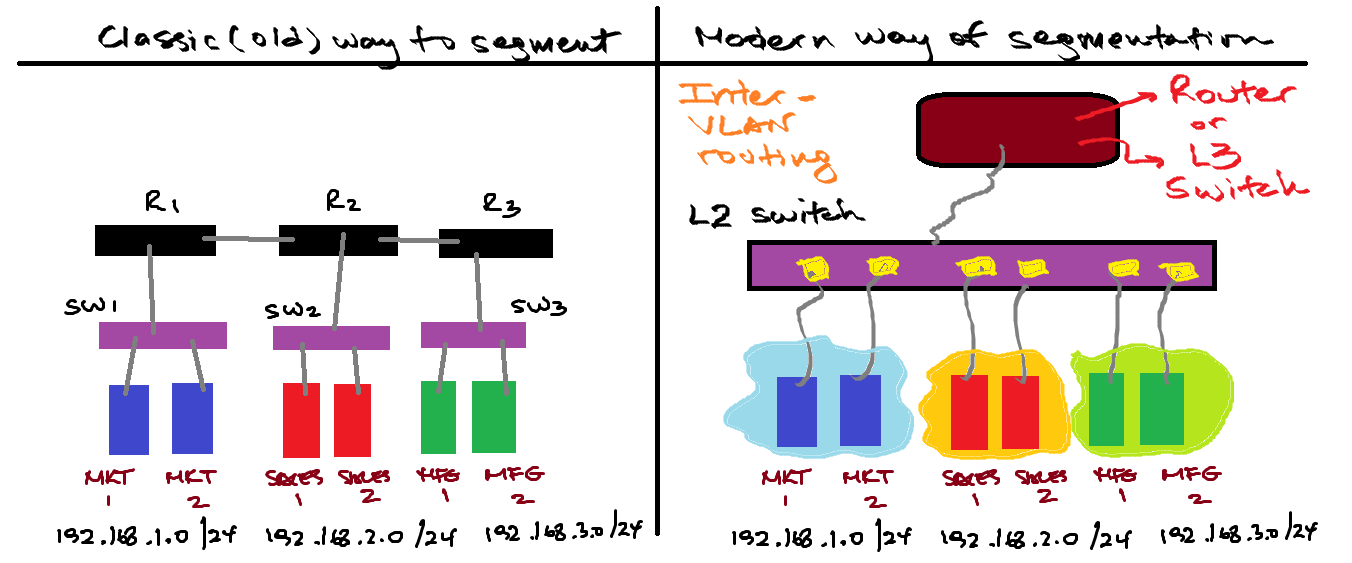 Classic (old) way to segment
R1
R2
R3
SW1
SW2
SW3
MKT 1
MKT 2
SALES 1
SALES 2
MFG 1
MFG 2
192.168.1.0 /24
192.168.2.0 /24
192.168.3.0 /24
Modern way of segmentation
Inter-
VLAN
routing
Router
or
L3
Switch
L2 switch
MKT 1
MKT 2
SALES 1
SALES 2
MFG 1
MFG 2
192.168.1.0 /24
192.168.2.0 /24
192.168.3.0 /24